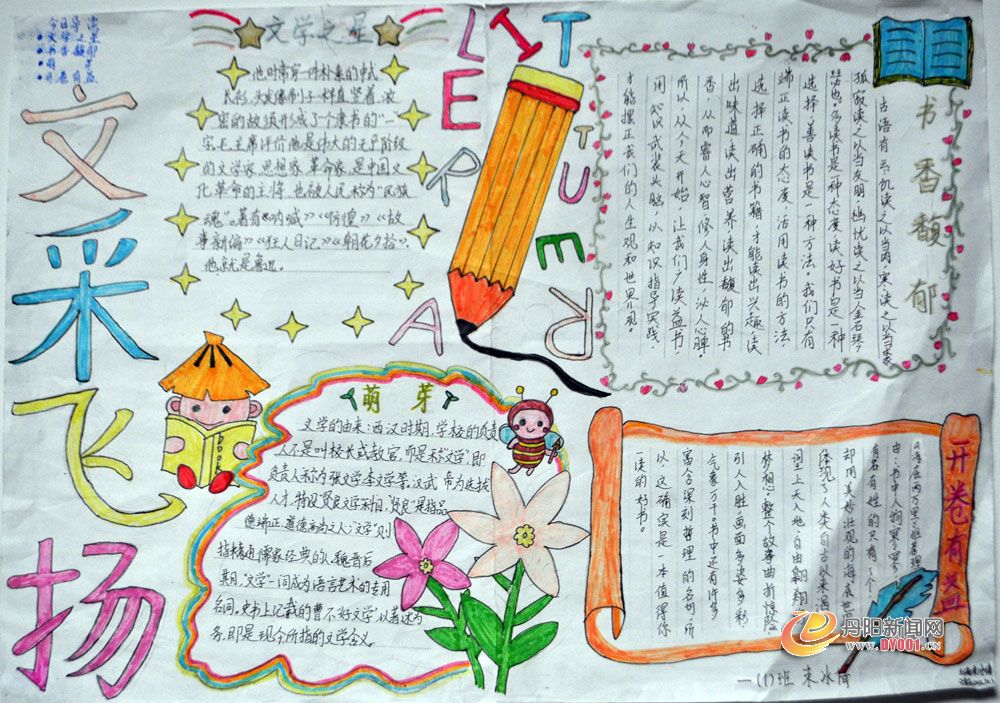 文采飞扬
文学之星
他时常穿一件朴素的中式
长衫,头发像刷子一样直竖着,浓
密的胡须形成了个隶书的“一”
字。毛主席评价他是伟大的无产阶级
的文学家、思想家、革命家,是中国文
化革命的主将,也被人民称为“民族
魂”。著有《呐喊》《彷徨》《故
事新编》《狂人日记》《朝花夕拾》,
他,就是鲁迅。
LITTUER
LEPA
书香馥郁
古语有云:饥读之以当肉,寒读之以当裘,
孤寂读之以当友朋,幽忧读之以当金石琴
瑟也。多读书是一种态度,读好书是一种
选择,善读书是一种方法。我们只有
端正读书的态度,活用读书的方法
选择正确的书籍,才能读出兴趣,读
出味道,读出营养,读出馥郁的书
香,从而睿人心智,修人身性,沁人心脾。
所以从今天开始,让我们广读益书,
用知识武装头脑,以知识指导实践,
才能摆正我们的人生观和世界观。
萌芽
文学的由来:西汉时期,学校的负责
人不是叫校长或教官,而是称“文学”即
负责人称为张文学、李文学等,汉武帝为选拔
人才,特设“贤良文学”科目,“贤良”是指品
德端正、道德高尚之人;“文学”则
指精通儒家经典的人,魏晋后
期,“文学”一词成为语言艺术的专用
名词。史书上记载的曹不好文学,以著述为
务,即是现今所指的文学含义。
book
开卷有益
《海底两万里》
由,书中人物寥寥
有名有姓的只有
却用美妙壮观的海底世
体现了人类自古以来渴
望上天入地、自由翱翔
梦想。整个故事曲折惊险
引人入胜,画面多姿多彩
气象万千。书中还有许多
富含深刻哲理的名句,所
以,这确实是一本值得你
一读的好书。
一(1)班
丹阳新闻网
www.DY001.CN